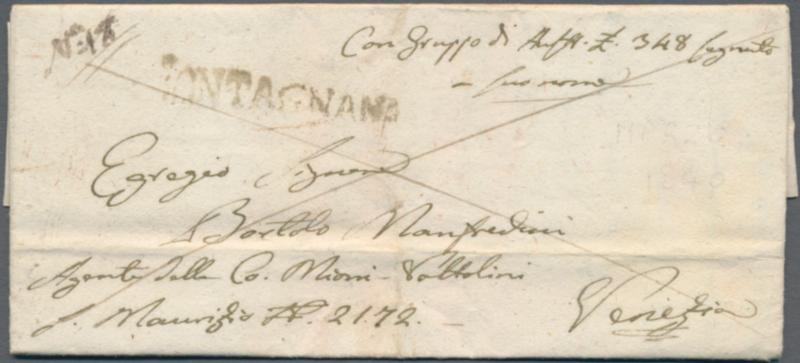 N.° 18
Con gruppo di Aust. L. 348 segnato
suo nome
MONTAGNANA
Egregio Signore
Bortolo Manfredini
Agente della Co. Mioni
S. Maurizio N. 2172.
Venezia